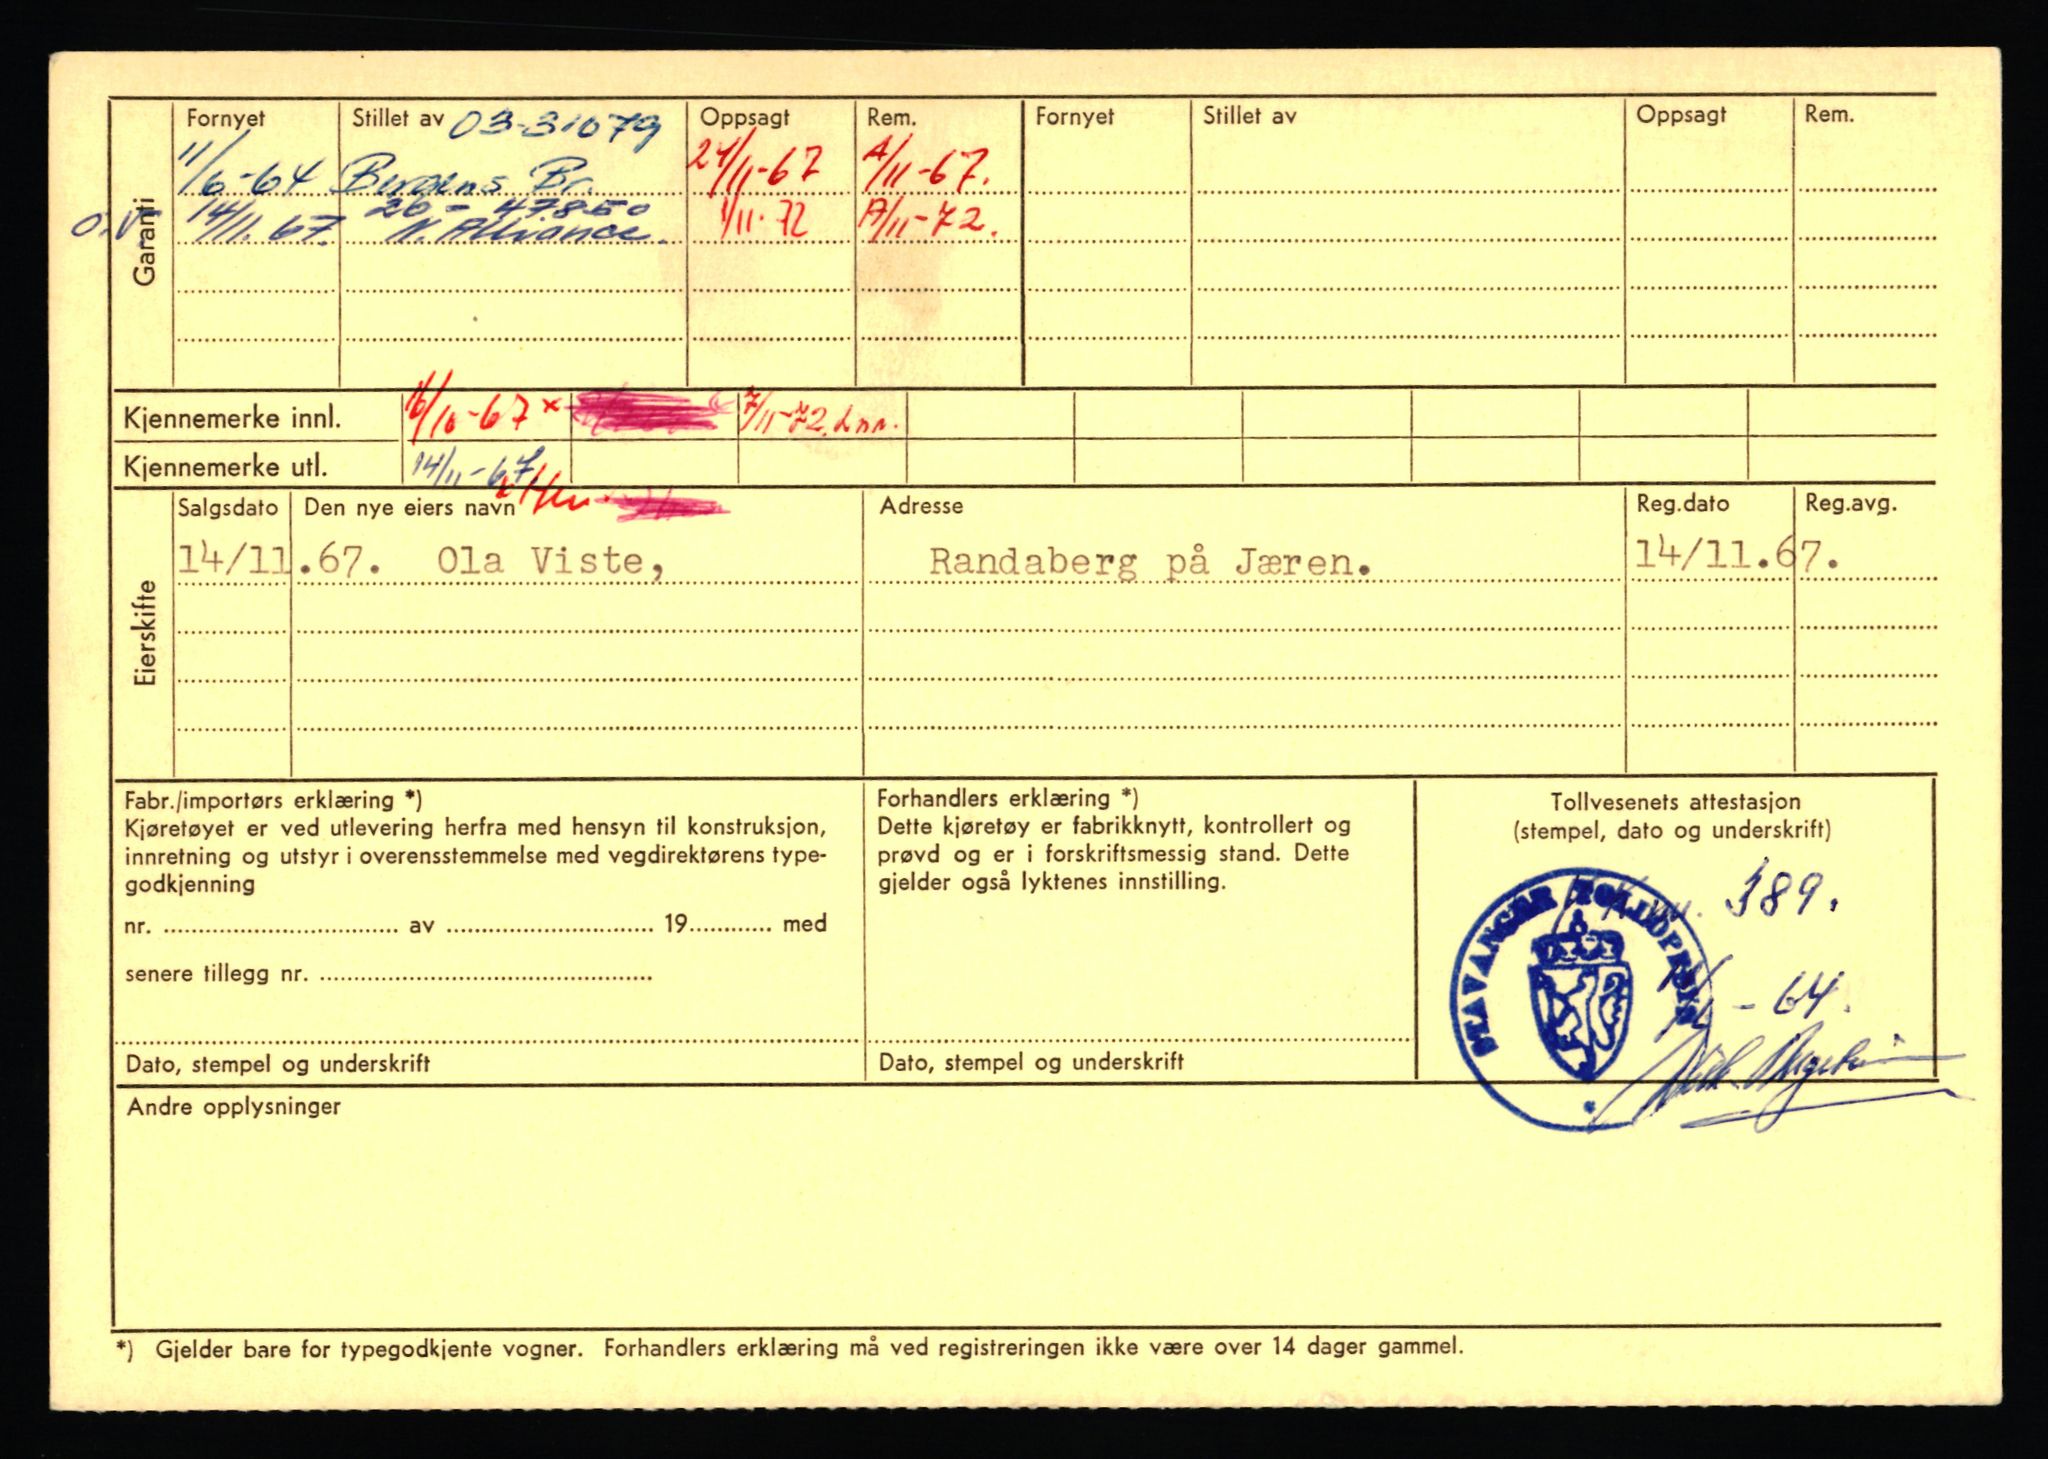 Garanti
Fornyet Stillet av 03-31079 Oppsagt Rem. Fornyet Stillet av Oppsagt Rem.
11/6-64 Bergens Br. 24/11-67 A/11-67.
26-47850
14/11.67. N. Alliance. 1/11.72 A/11-72.
Kjennemerke innl. 16/10-67 x 7/11-72. Lnr.
Kjennemerke utl. 14/11-67
Eierskifte
Salgsdato Den nye eiers navn Adresse Reg.dato Reg.avg.
14/11.67. Ola Viste, Randaberg på Jæren. 14/11.67.
Fabr./importørs erklæring *)
Kjøretøyet er ved utlevering herfra med hensyn til konstruksjon,
innretning og utstyr i overensstemmelse med vegdirektørens type-
godkjenning
nr. av 19 med
senere tillegg nr.
Dato, stempel og underskrift
Forhandlers erklæring *)
Dette kjøretøy er fabrikknytt, kontrollert og
prøvd og er i forskriftsmessig stand. Dette
gjelder også lyktenes innstilling.
Dato, stempel og underskrift
Tollvesenets attestasjon
(stempel, dato og underskrift)
389.
-64.
STAVANGER TOLLDPENS
Andre opplysninger
*) Gjelder bare for typegodkjente vogner. Forhandlers erklæring må ved registreringen ikke være over 14 dager gammel.